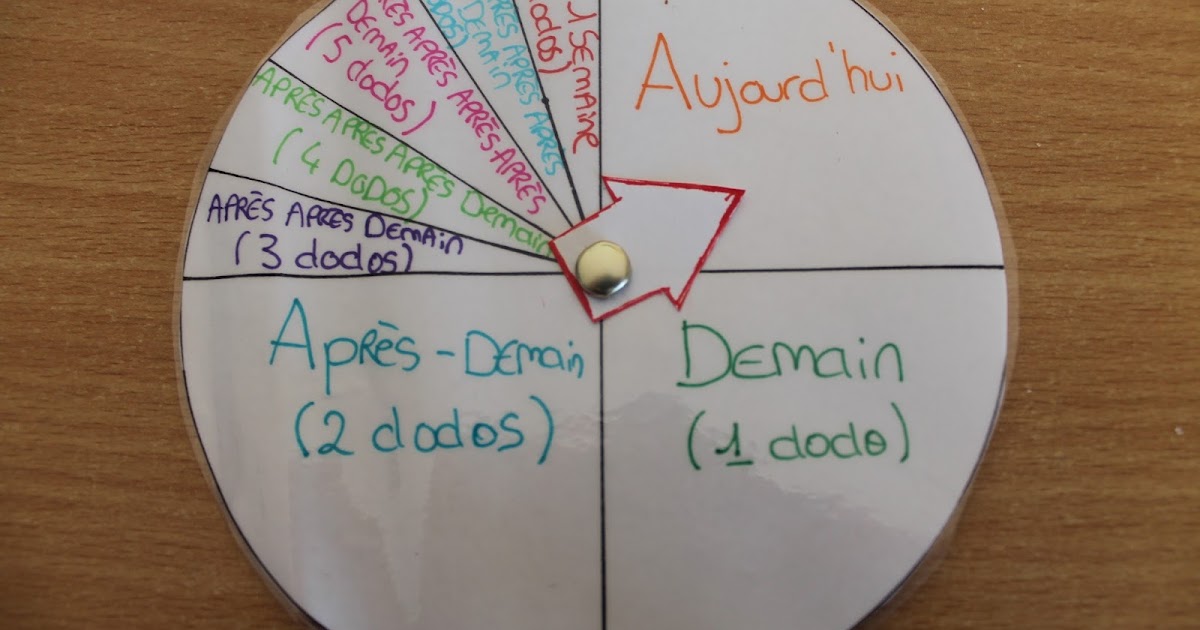 Aujourd'hui
Demain
(1 dodo)
Après-Demain
(2 dodos)
APRÈS APRES DEMAIN
(3 dodos)
APRÈS APRES APRES APRÈS Demain
(4 DODOS)
APRÈS APRÈS APRÈS APRÈS
DEMAIN
(5 dodos)
APRÈS APRES
DEMAIN
1 SEMAINE
dodos)